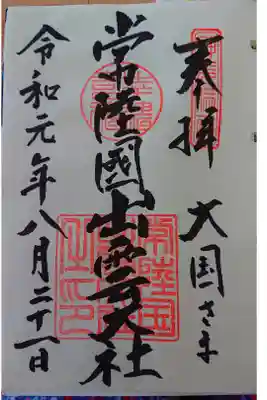 奉拝 大国さま
常陸國出雲大社
令和元年八月二十一日